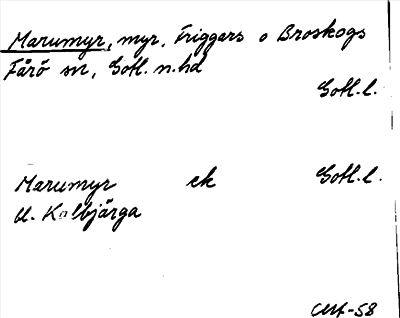 Marumyr, myr, Friggars o Broskogs
Fårö sn, Gotl. n. hd
Gotl. l.
Marumyr ek Gotl. l.
d. Kalbjärga
-58